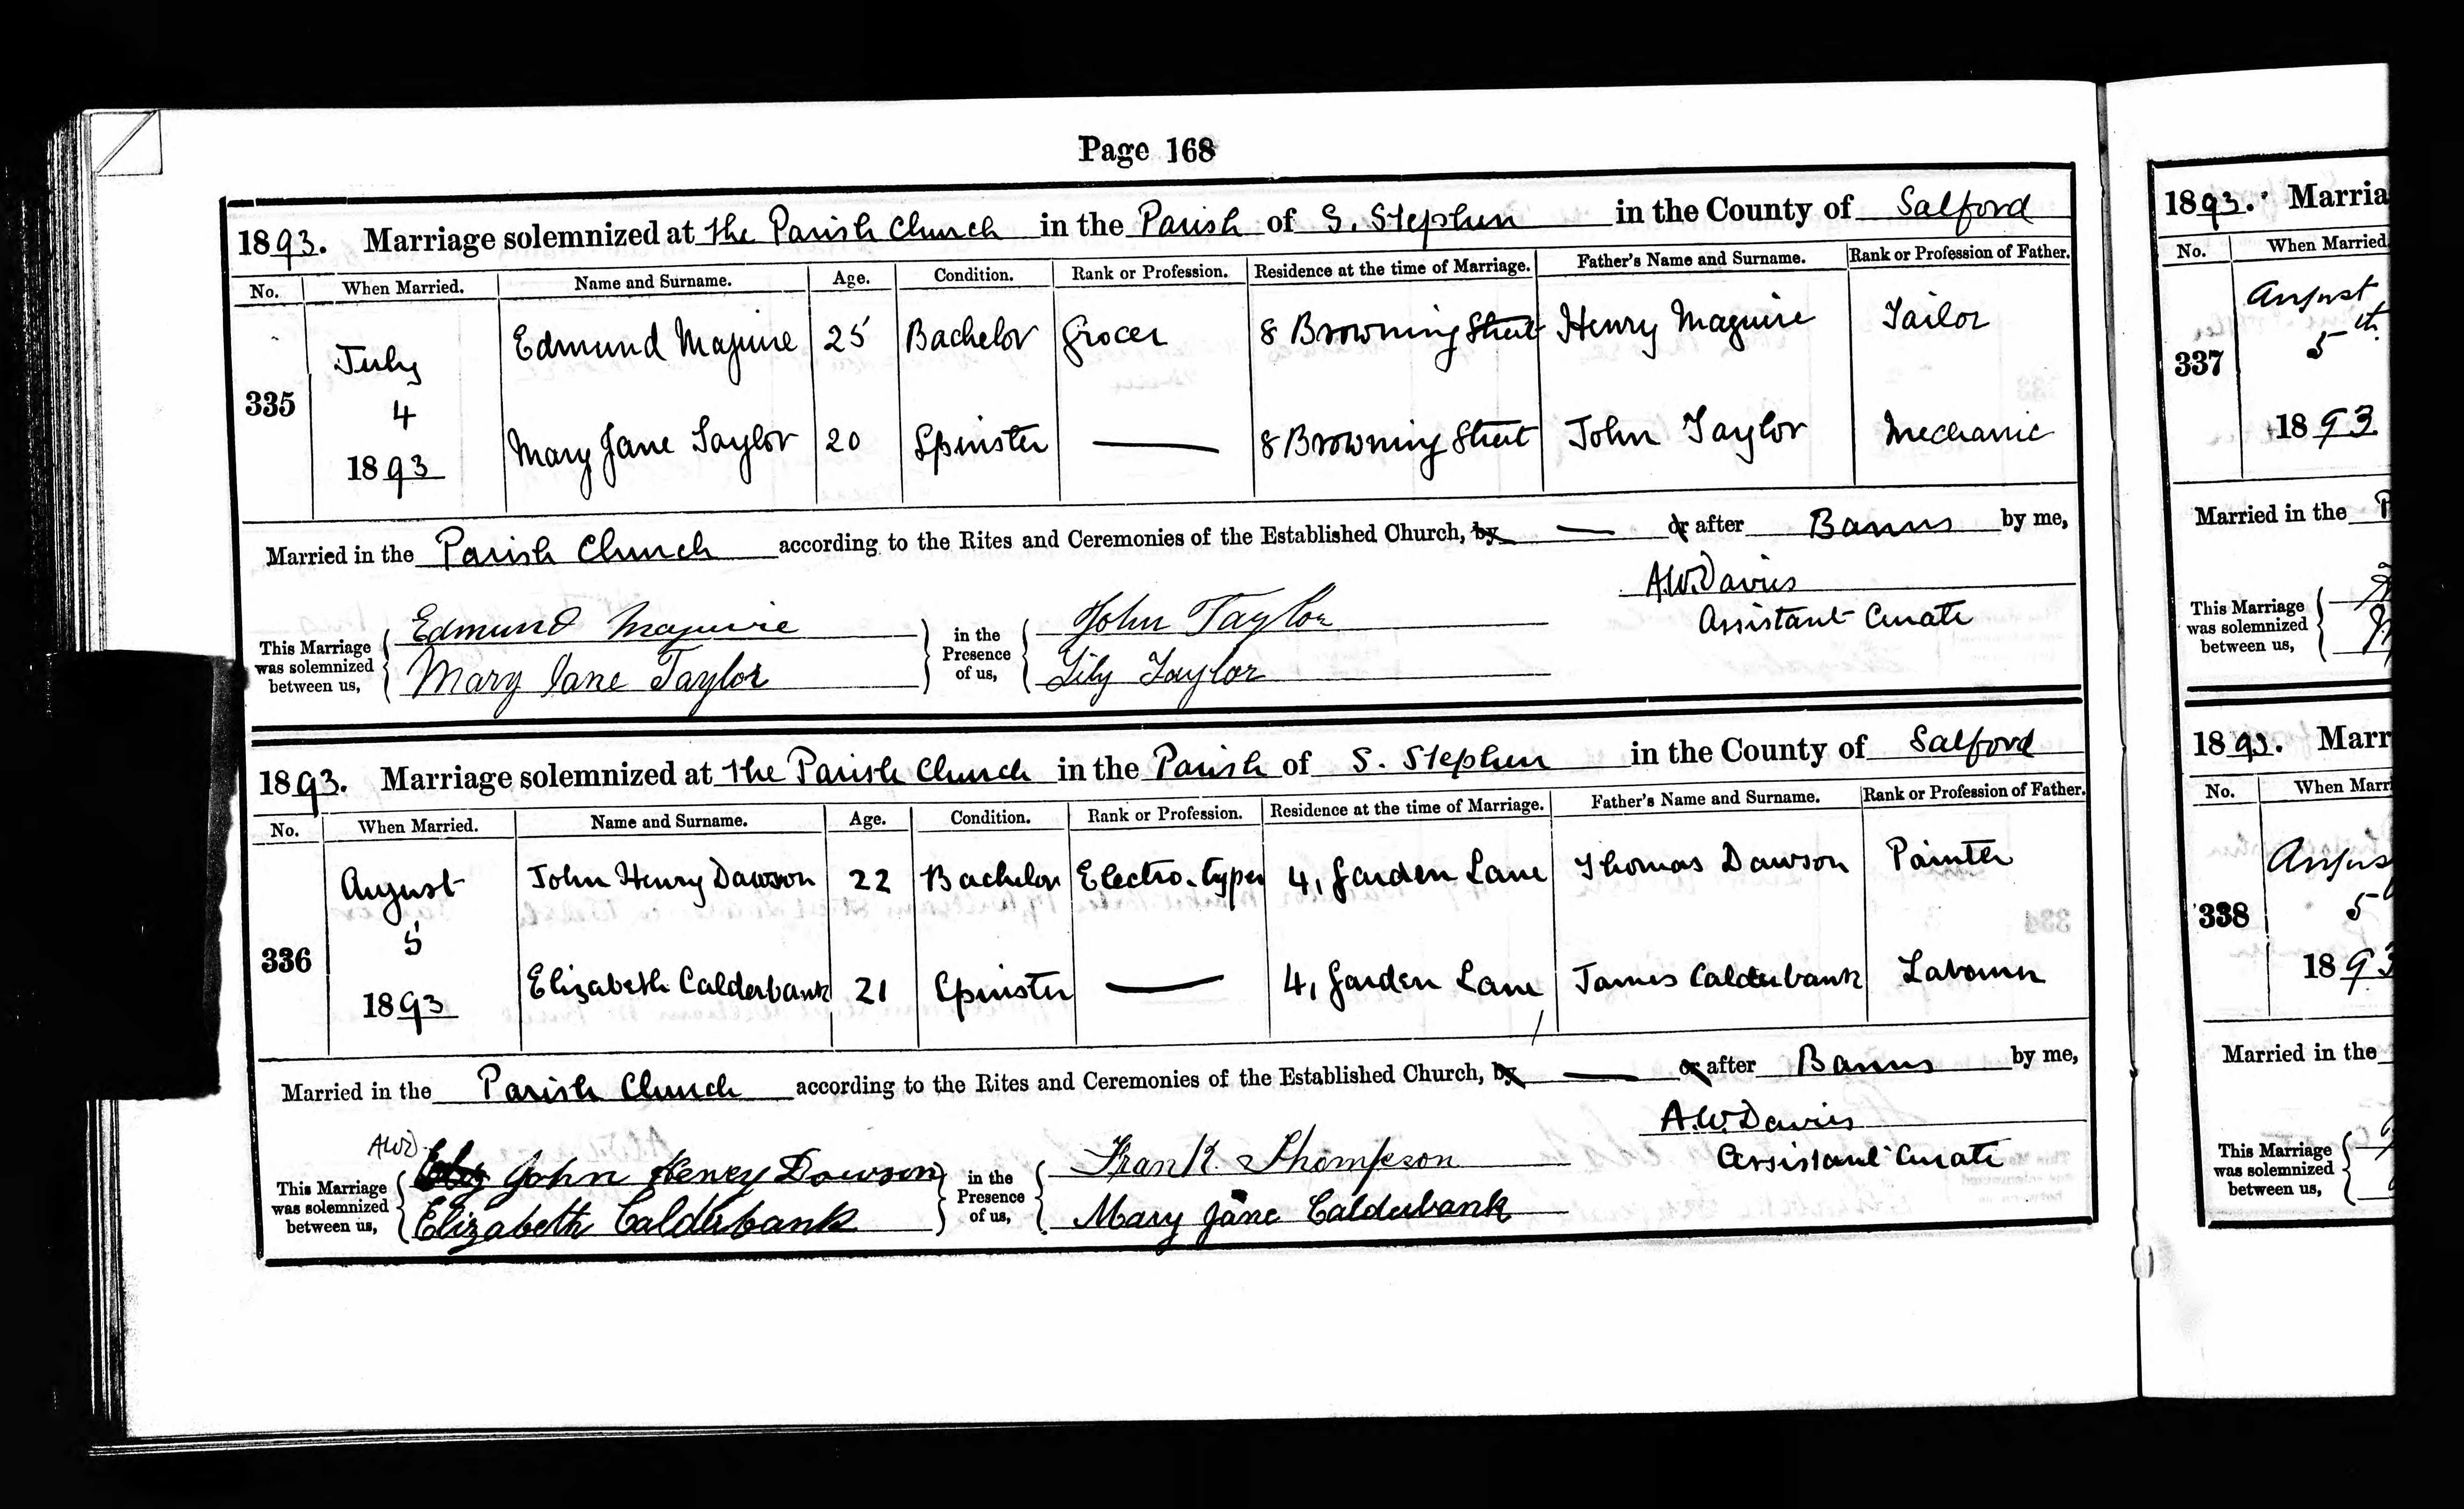 Page 168
1893. Marriage solemnized at the Parish Church in the Parish of S. Stephen in the County of Salford
No. When Married. Name and Surname. Age. Condition. Rank or Profession. Residence at the time of Marriage. Father's Name and Surname. Rank or Profession of Father.
335 July 4 1893
Edmund Maguire 25 Bachelor Grocer 8 Browning Street Henry Maguire Tailor
Mary Jane Taylor 20 Spinster — 8 Browning Street John Taylor Mechanic
Married in the Parish Church according to the Rites and Ceremonies of the Established Church, by — or after Banns by me,
A.W. Davies
Assistant Curate
This Marriage was solemnized between us, Edmund Maguire in the Presence of us, John Taylor
Mary Jane Taylor Lily Taylor
1893. Marriage solemnized at the Parish Church in the Parish of S. Stephen in the County of Salford
No. When Married. Name and Surname. Age. Condition. Rank or Profession. Residence at the time of Marriage. Father's Name and Surname. Rank or Profession of Father.
336 August 5 1893
John Henry Dawson 22 Bachelor Electro-typer 4, Garden Lane Thomas Dawson Painter
Elizabeth Calderbank 21 Spinster — 4, Garden Lane James Calderbank Labourer
Married in the Parish Church according to the Rites and Ceremonies of the Established Church, by — or after Banns by me,
A.W. Davies
Assistant Curate
AWD
This Marriage was solemnized between us, John Henry Dawson in the Presence of us, Frank Thompson
Elizabeth Calderbank Mary Jane Calderbank
1893. Marria
No. When Married
337 August 5th 1893
Married in the P
This Marriage was solemnized between us,
1893. Marr
No. When Marr
338 Augus 5 1893
Married in the
This Marriage was solemnized between us,